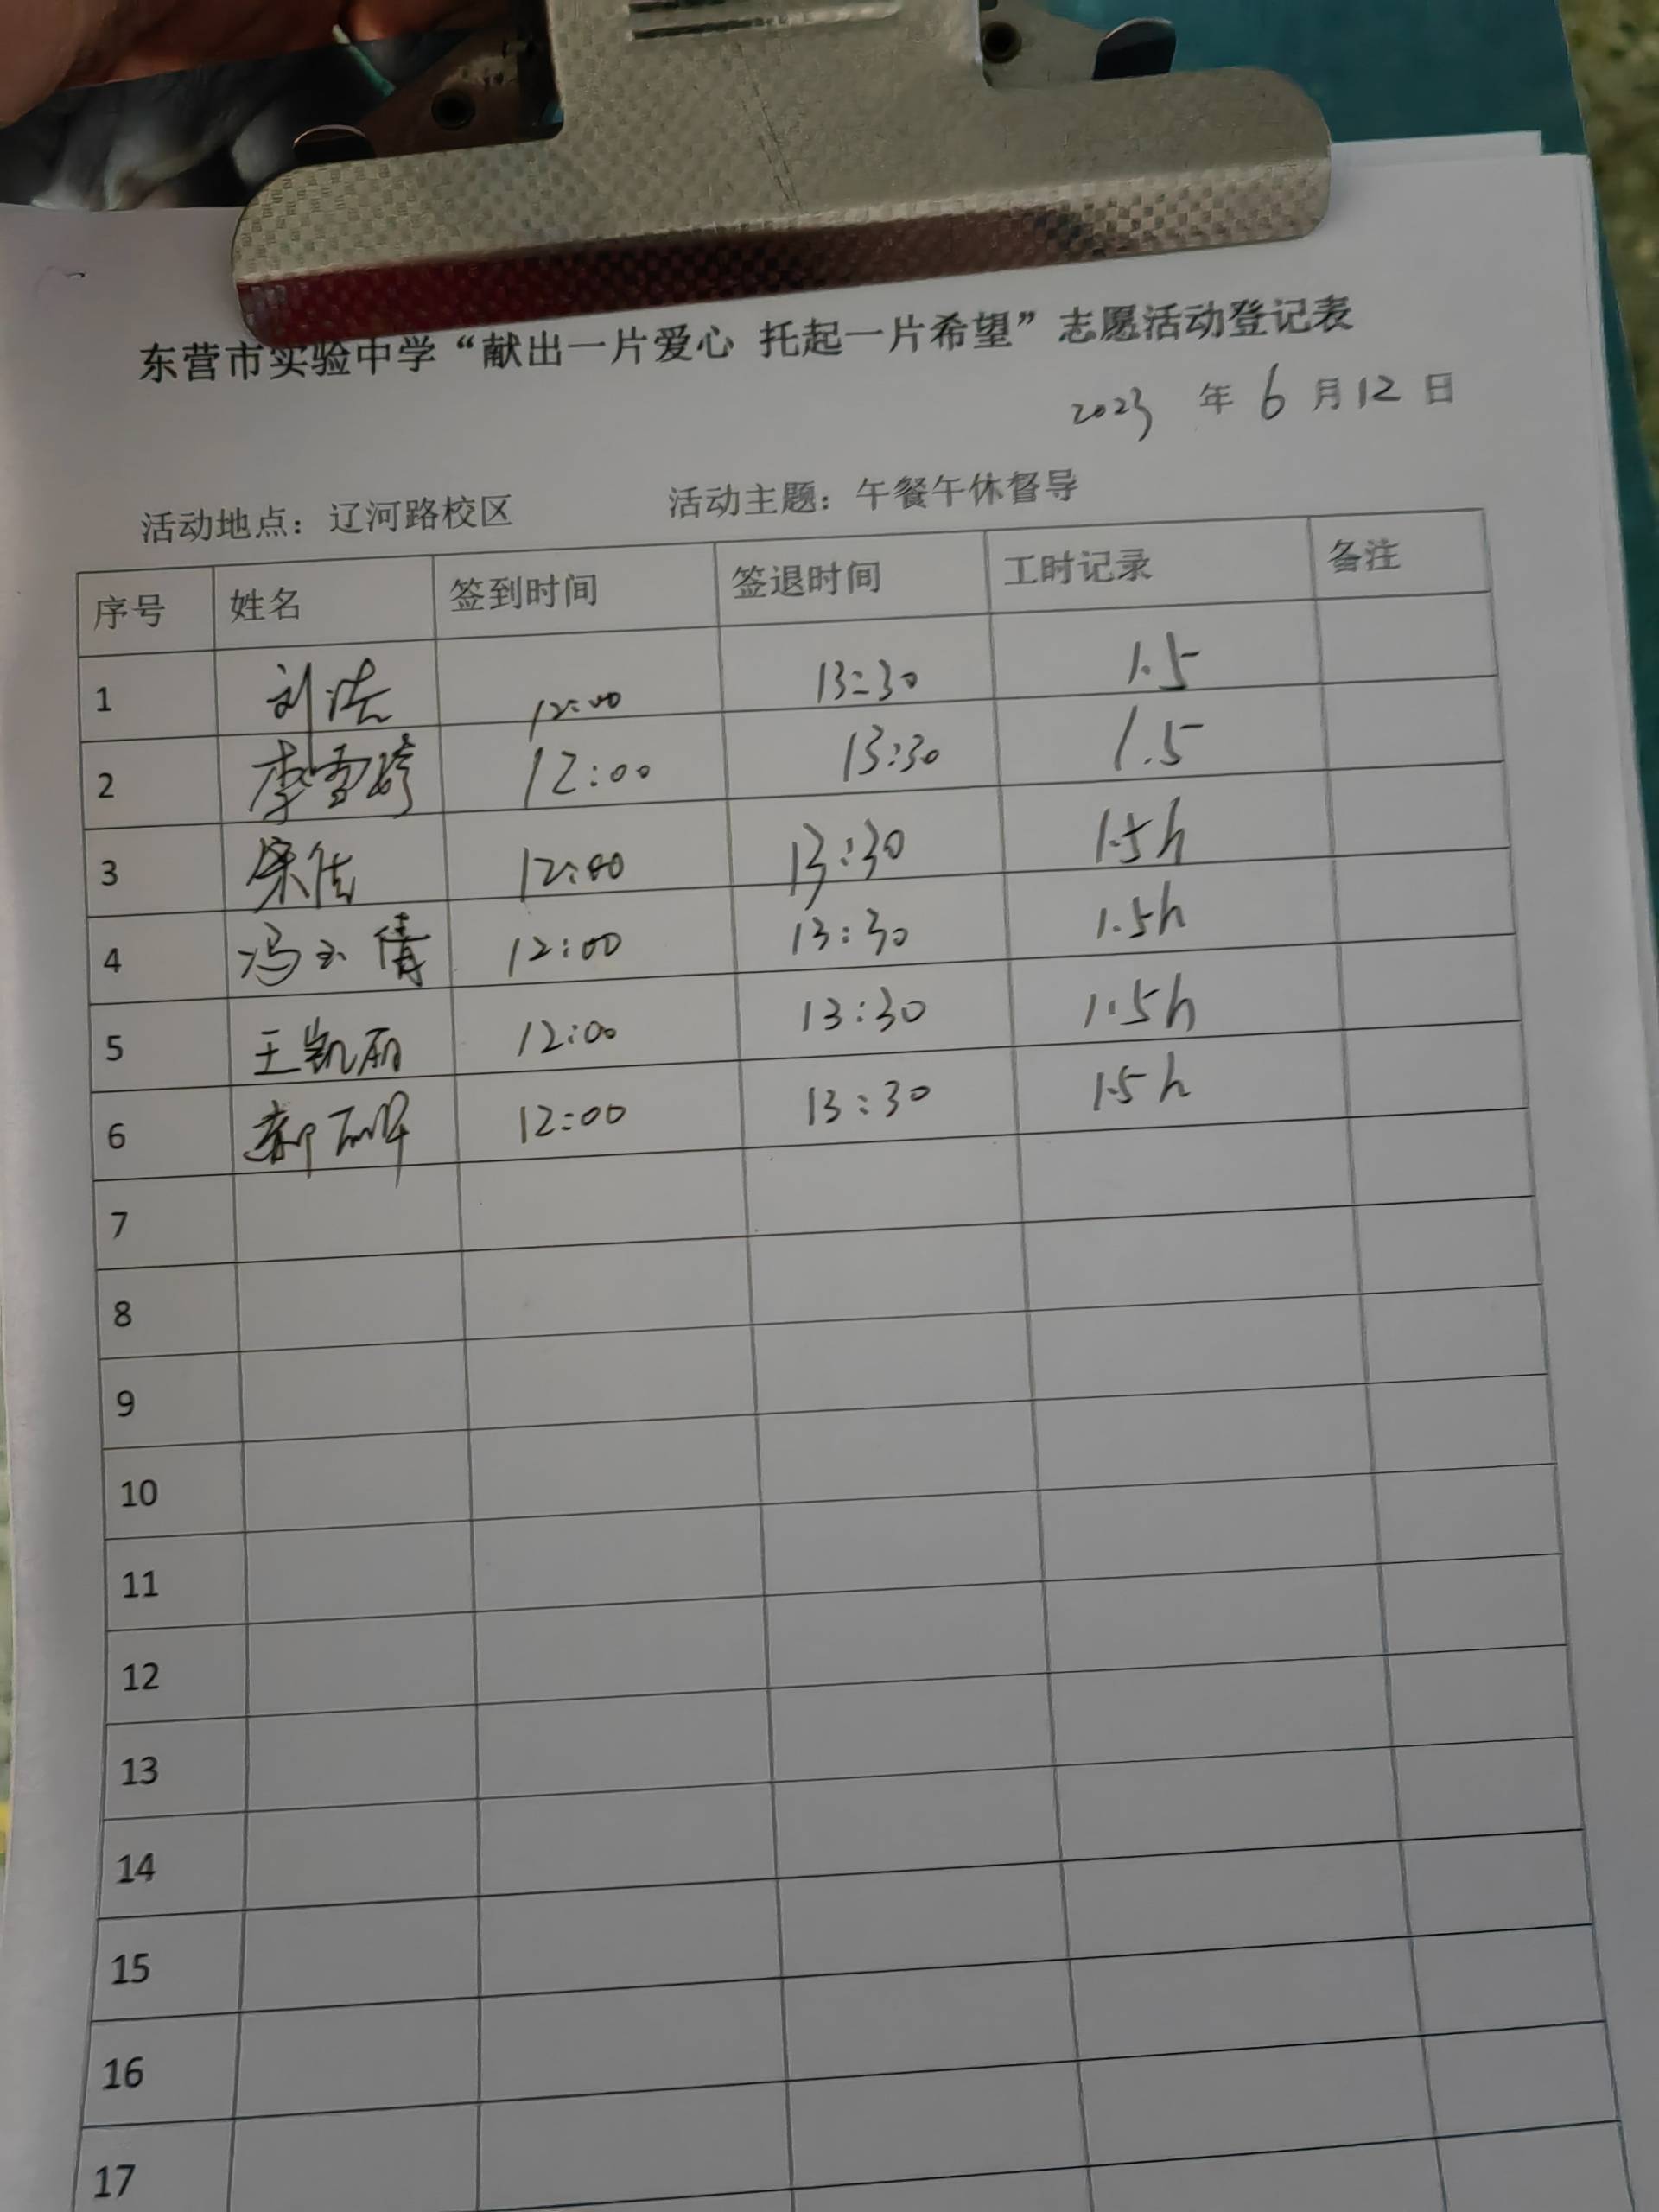 东营市实验中学“献出一片爱心 托起一片希望”志愿活动登记表
2023 年 6 月 12 日
活动地点：辽河路校区 活动主题：午餐午休督导
序号 姓名 签到时间 签退时间 工时记录 备注
1 刘浩 12:00 13:30 1.5
2 李雪婷 12:00 13:30 1.5
3 12:00 13:30 1.5h
4 冯玉倩 12:00 13:30 1.5h
5 王凯丽 12:00 13:30 1.5h
6 12:00 13:30 1.5h
7
8
9
10
11
12
13
14
15
16
17